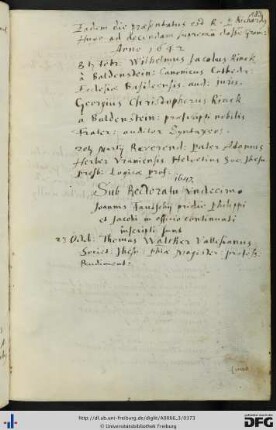 Eadem die praesentatus est R. P. Richardus
Huge ad docendam supremae classis Gram:
Anno 1642
8 tobr. Wilhelmus Jacobus Rinck
à Baldenstein: Canonicus Cathedr:
Ecclesiae Basileensis. aud: juris.
Georgius Christophorus Rinck
a Baldenstein: praescripti nobilis
Frater: auditor Syntaxeos.
Reverend: Pater Adamus
Herber Helvetius Soc: Jesu
presb: Logicae prof:
1642.
Sub Rectoratu undecimo
Joannis pridie Philippi
et Jacobi in officio continuati
inscripti sunt
27 Octob: Thomas Walcker Vallesianus
Societ: Jhesu: phiae magister: profess:
Rudiment:
http://dl.ub.uni-freiburg.de/diglit/A0066_3/0373
© Universitätsbibliothek Freiburg
gefördert durch
DFG